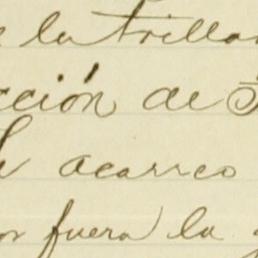 la trilla
cción de
acarreo
fuera la